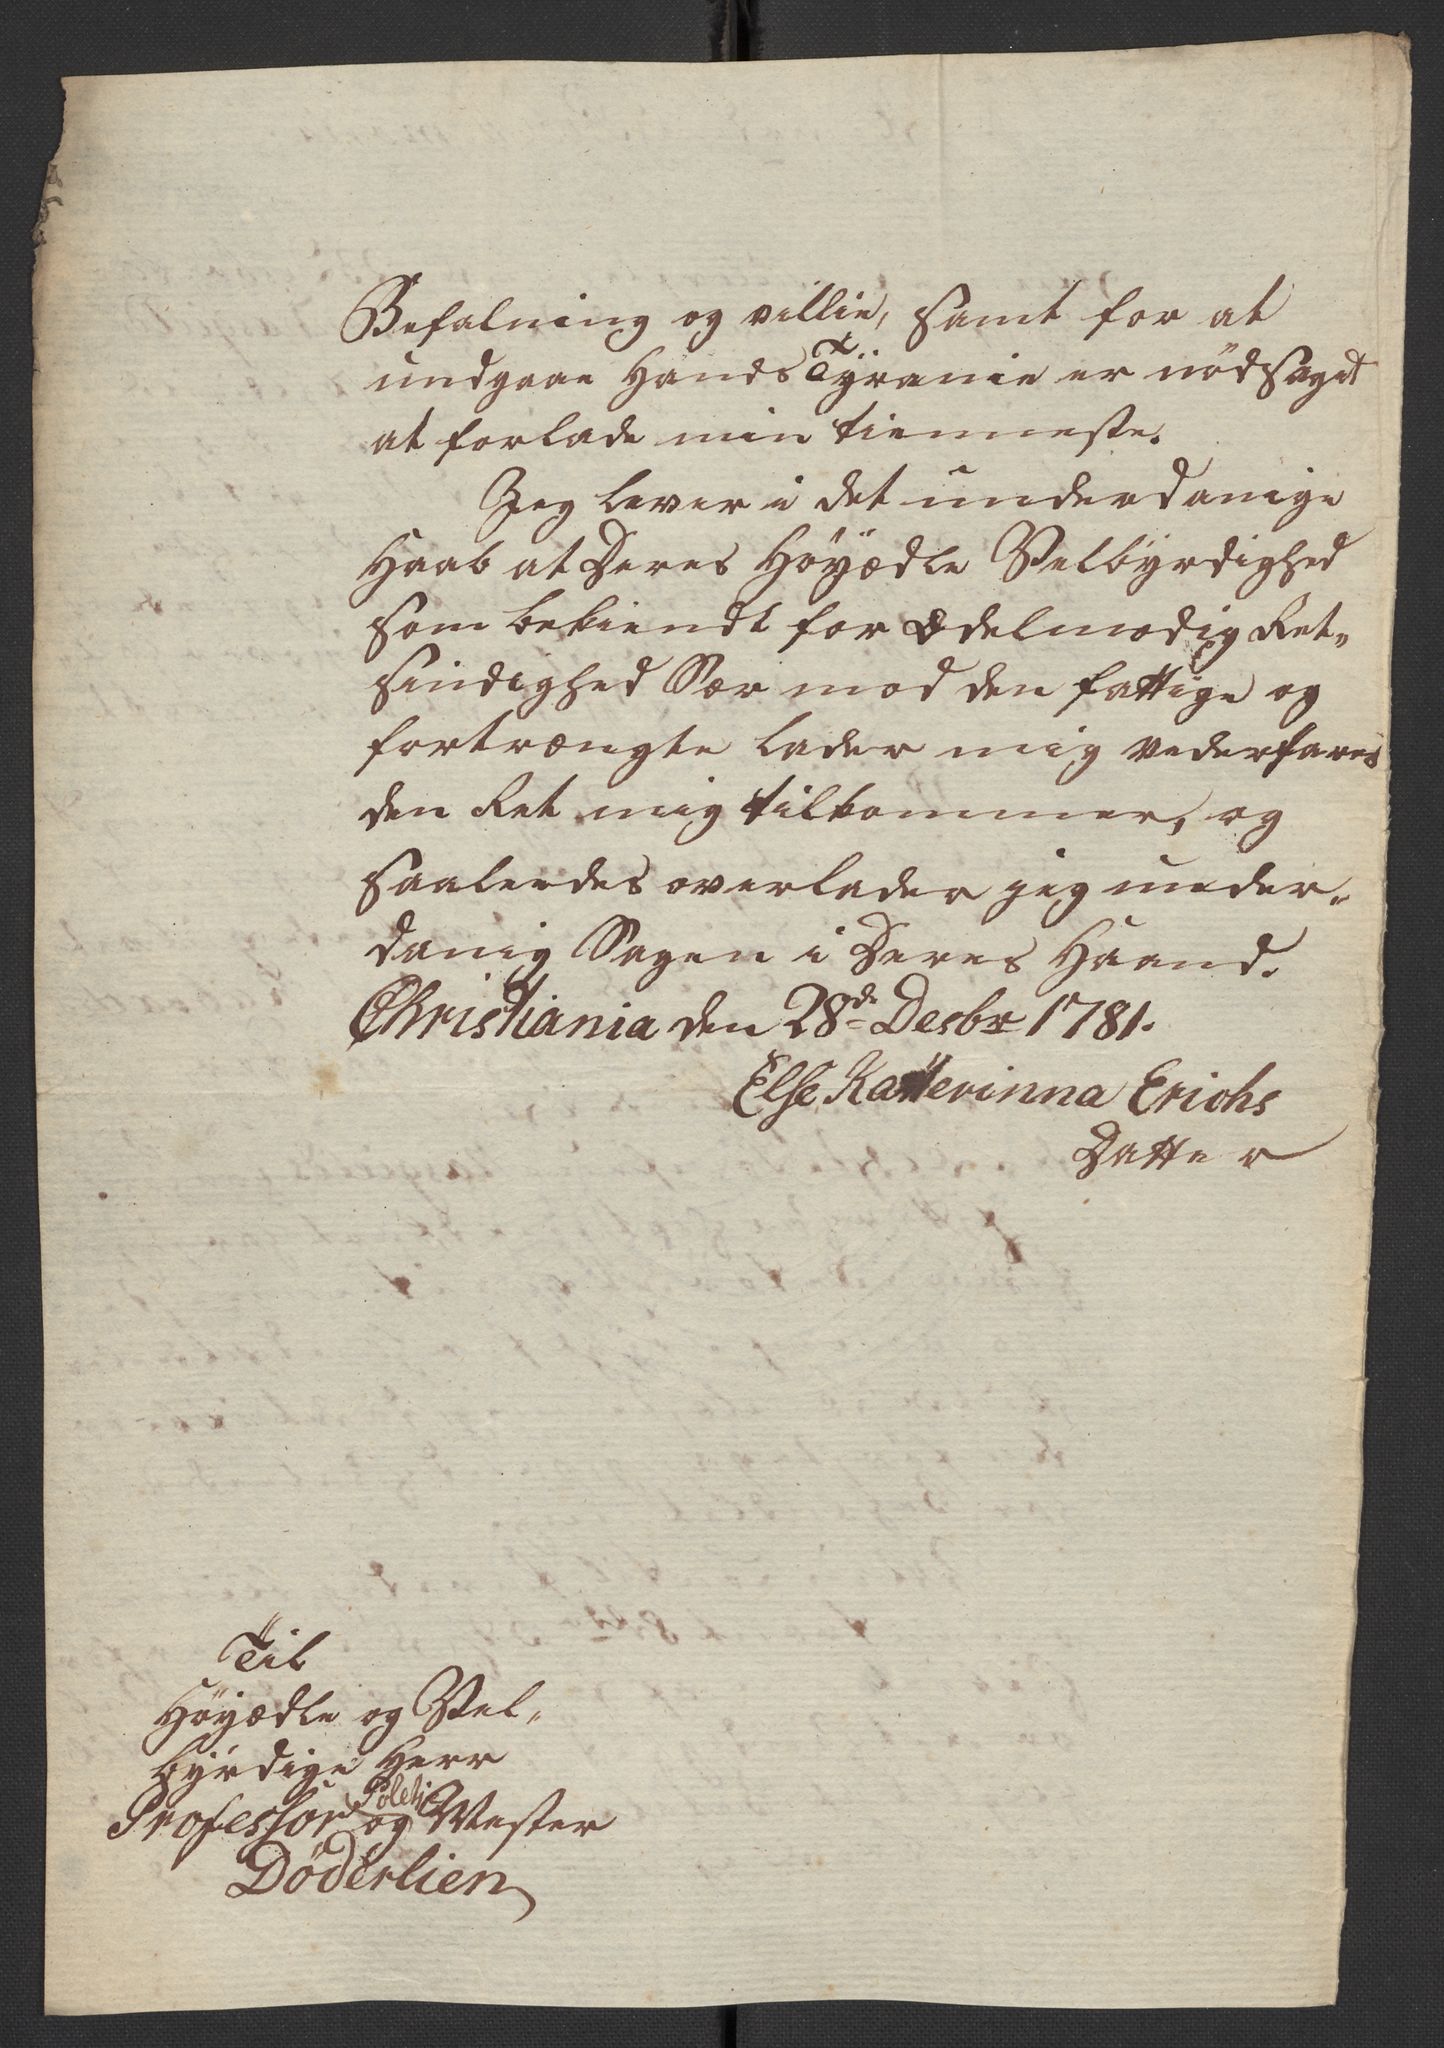 Befalning og villie, samt for at
undgaae Hands Tÿranie er nödsaget
at forlade min tienneste.
Jeg lever i det underdanige
Haab at Deres Höÿædle Velbÿrdighed
som bekiendt for ædelmodig Ret„
sindighed Sær mod den fattige og
fortrængte lader mig vederfares
den Ret mig tilkommer, og
saaleedes overlader jeg under„
danig Sagen i Deres Haand.
Christiania den 28de Desbr 1781.
Else Katterinna Erichs
Datter
Til
Höÿædle og Vel„
bÿrdige Herr
Professor og Politi Mester
Döderlien